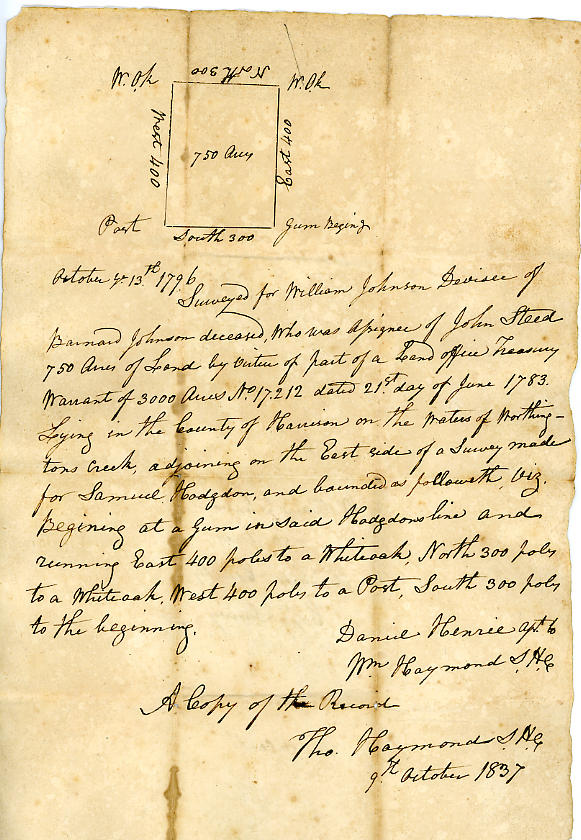 North 300
W. Ok
W. Ok
West 400
750 Acres
East 400
Post
Gum Begin̅g
South 300
October ye 13.th 1796
Surveyed for William Johnson Devisee of
Barnard Johnson deceased, Who was assignee of John Steed
750 Acres of Land by virtue of part of a Land office Treasury
Warrant of 3000 Acres No 17.212 dated 21st day of June 1783.
Lying in the County of Harrison on the Waters of Worthing-
tons Creek, adjoining on the East side of a Survey made
for Samuel Hodgdon, and bounded as followeth, Viz.
Begining at a Gum in said Hodgdons line and
running East 400 poles to a Whiteoak, North 300 poles
to a Whiteoak, West 400 poles to a Post, South 300 poles
to the beginning.
Daniel Henrie asst. to
Wm Haymond S.H.C
A Copy of the Record
Tho. Haymond S.H.C
9th October 1837